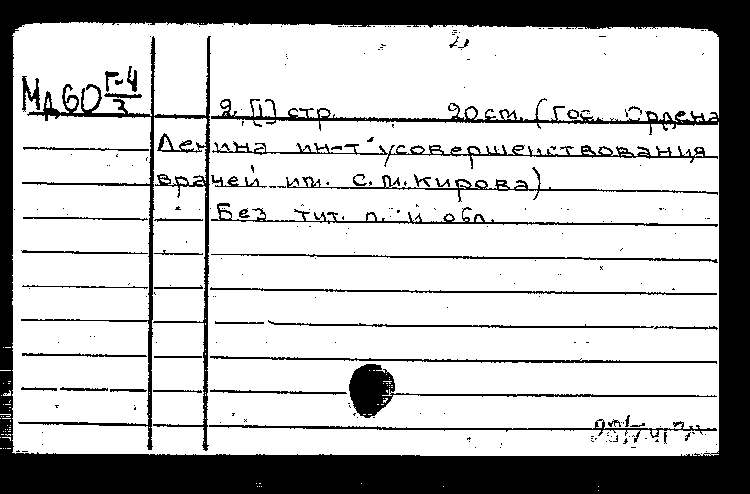 2
Мд60 Г-4/3
2, [1] стр. 20 см. (Гос. Ордена
Ленина ин-т усовершенствования
врачей им. С.М. Кирова).
Без тит. л. и обл.